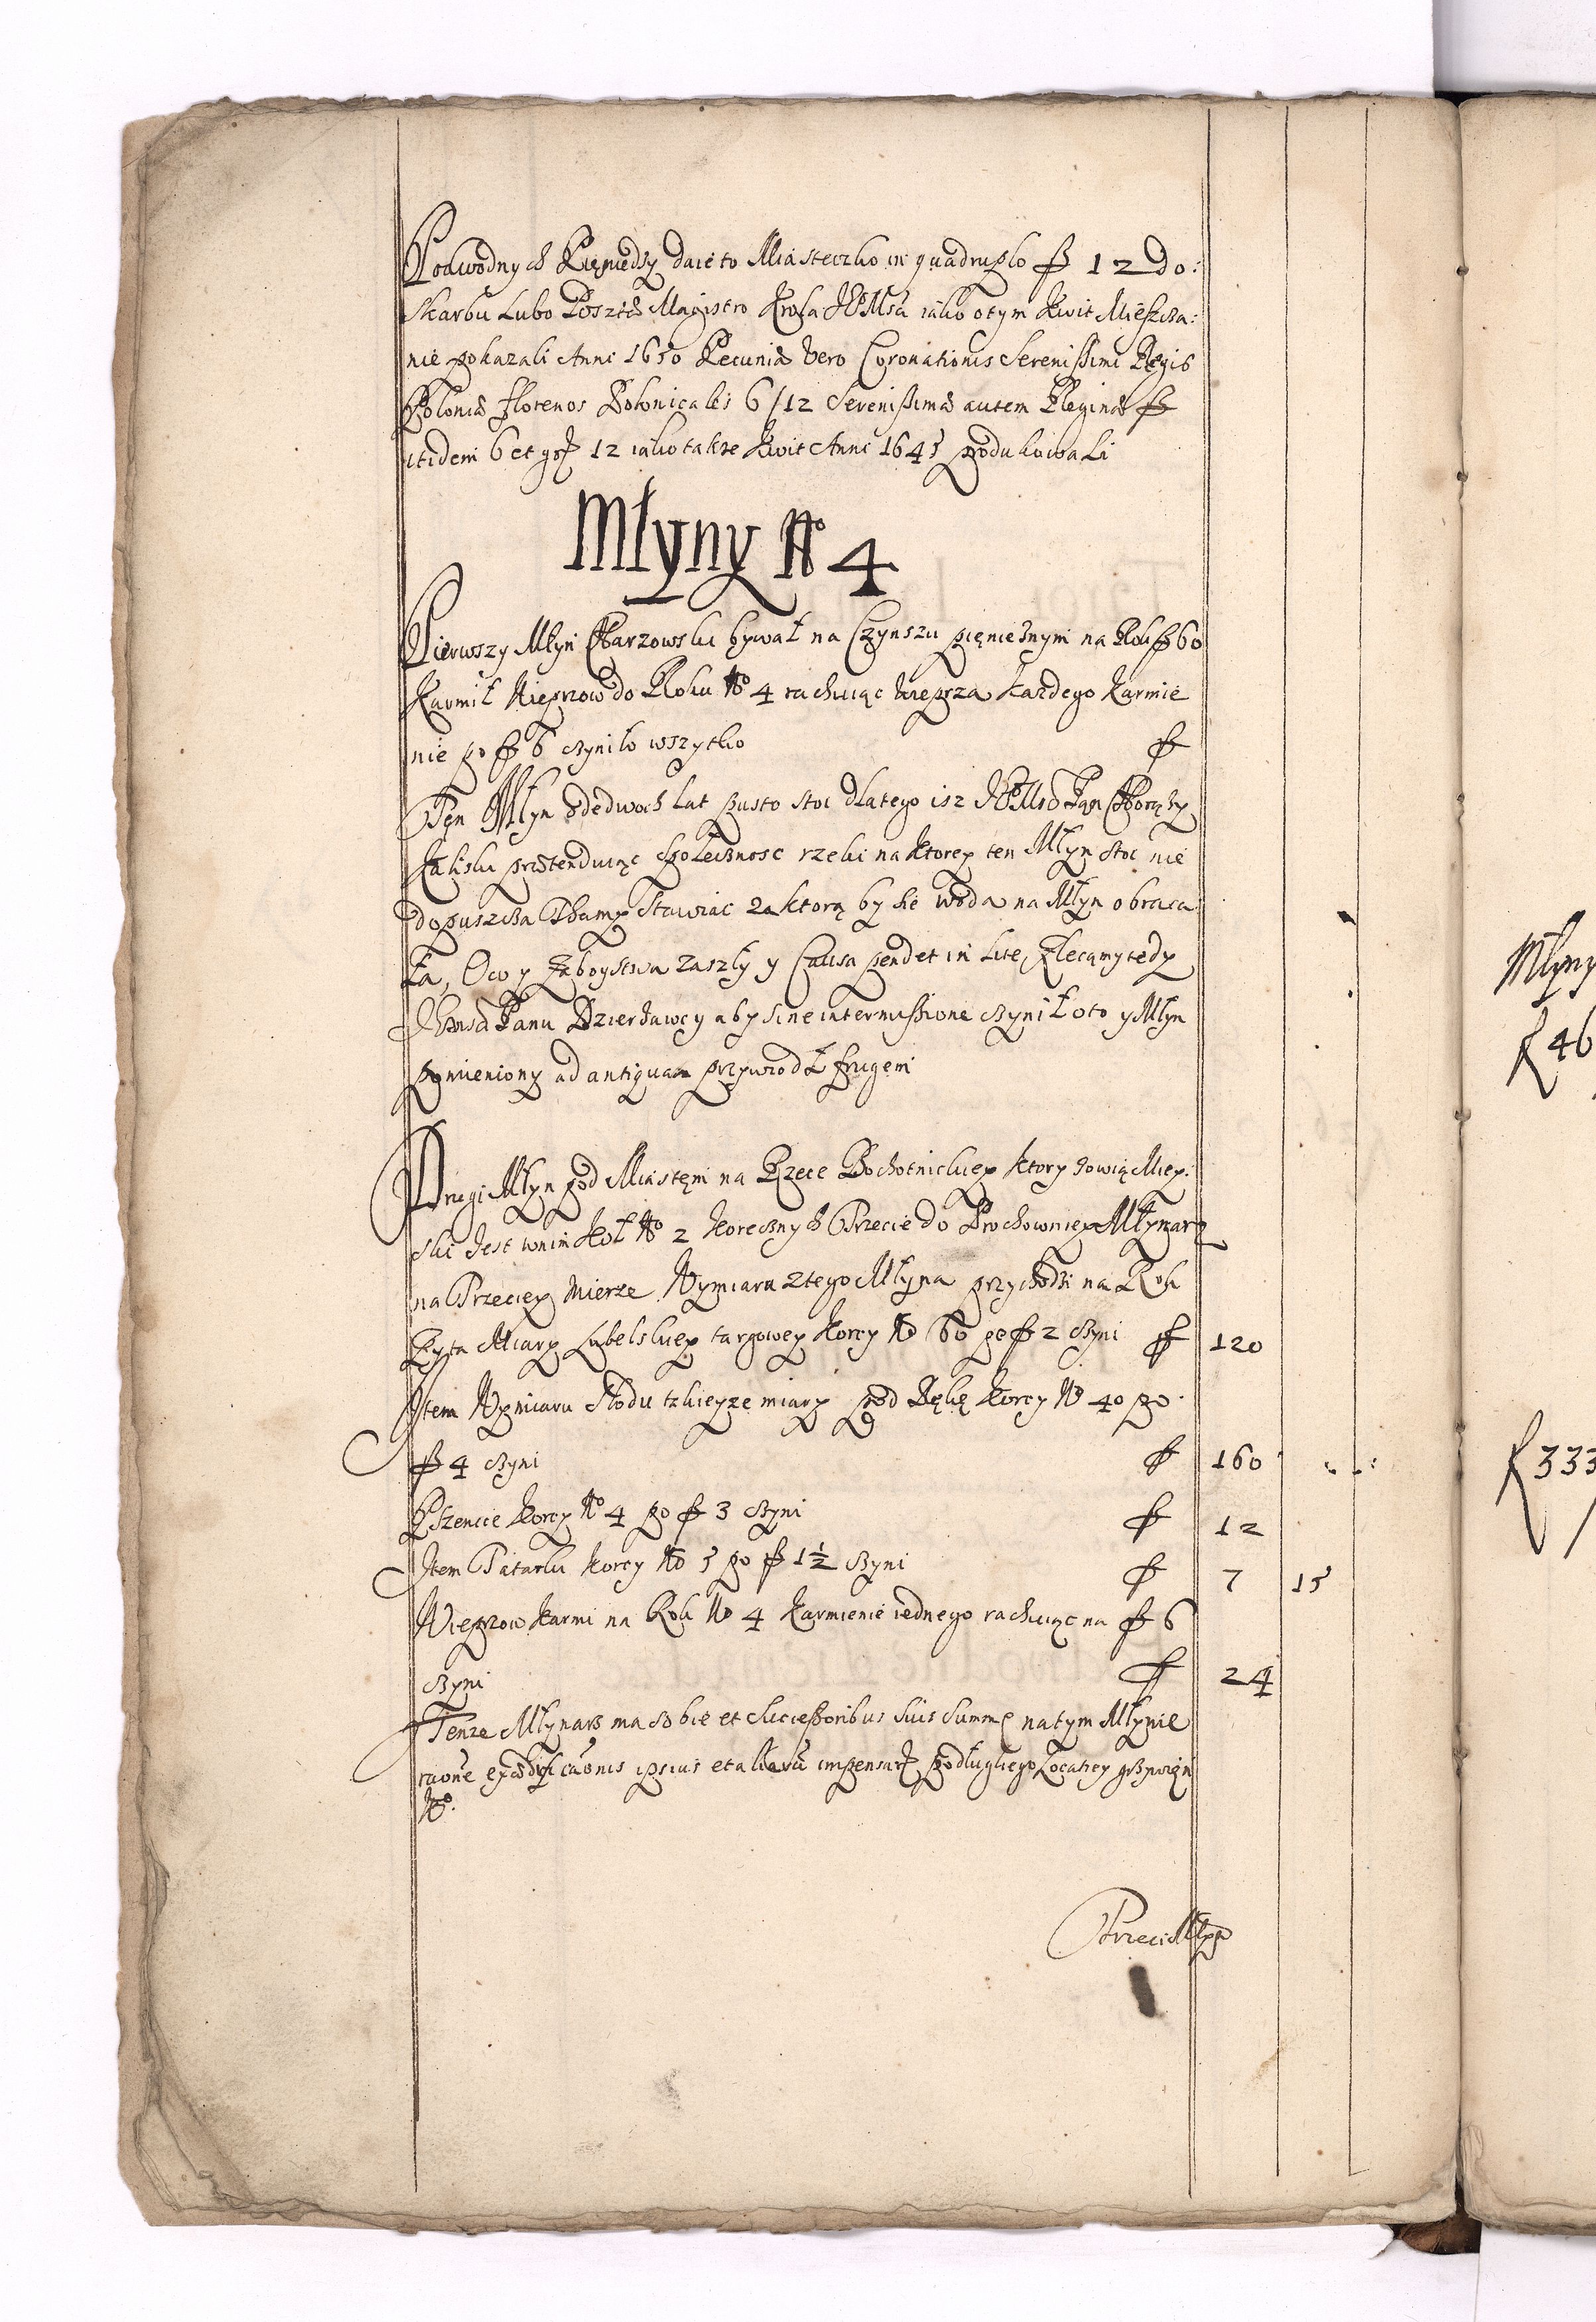 Podwodnych Pieniedzy daie to Miasteczko in quadruplo fl 12 do:
Skarbu Lubo Posztæ Magistro Krola JEoMsci iako o tym Kwit Miesczа:
nie pokazali Anni 1650 Pecuniæ Vero Coronationis Serenissimi Regis
Poloniæ florenos Polonicales 6/12 Serenissimæ autem Reginæ fl
itidem 6 et gos 12 iako takze Kwit Anni 1645 produkowali
Młyny No 4
Pierwszy Młyn bywał na Czynszu pięnieznym na Rok fl 60
Karmił Wieprzow do Roku No 4 rachuiąc Wieprza kazdego karmie
nie po fl 6 czyniło wszytko fl
Ten Młyn ode dwoch lat pusto stoi dlatego isz JEoMsc Pan Chorązy
Kaliski prætenduiąc społecznosc rzeki na ktorey ten Młyn stoi nie
dopuszcza Thamy Stawiac za ktorą by sie woda na Młyn obraca
ła, O co y Zaboystwa zaszły y Causa pendet in lite, Zlecamy tedy
Panu Dzierzawcy aby sine intermissione czynił o to y Młyn
pomieniony ad antiquam przywiodł frugem
Drugi Młyn pod Miastem na Rzece Bochotnickiey ktory zowią Miey:
ski Jest w nim Koł No 2 Korecznych Trzecie do Prochowniey Młynarz
na Trzeciey mierze Wymiaru z tego Młyna przychodzi na Rok
Zyta Miary Lubelskiey targowey Korcy No 60 po fl 2 czyni fl 120
Item Wymiaru Słodu tzkieyze miary pod Rękę Korcy No 40 po
fl 4 czyni fl 160
Pszenice Korcy No 4 po fl 3 czyni fl 12
Item Tatarki Korcy No 5 po fl 1½ czyni fl 7 15
Wieprzow karmi na Rok No 4 karmienie iednego rachuiąc na fl 6
czyni fl 24
Tenze Młynarz ma sobie et Successoribus Suis Summę na tym Młynie
raone ipsius et aliaru impensar podług iego Locatiey
No.
Trzeci Młyn
Młyny
f 46
f 333